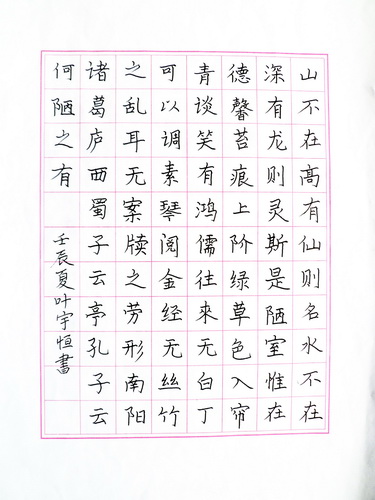 山不在高有仙则名水不在
深有龙则灵斯是陋室惟在
德馨苔痕上阶绿草色入帘
青谈笑有鸿儒往來无白丁
可以调素琴阅金经无丝竹
之乱耳无案牍之劳形南阳
诸葛庐西蜀子云亭孔子云
何陋之有
壬辰夏叶宇恒書